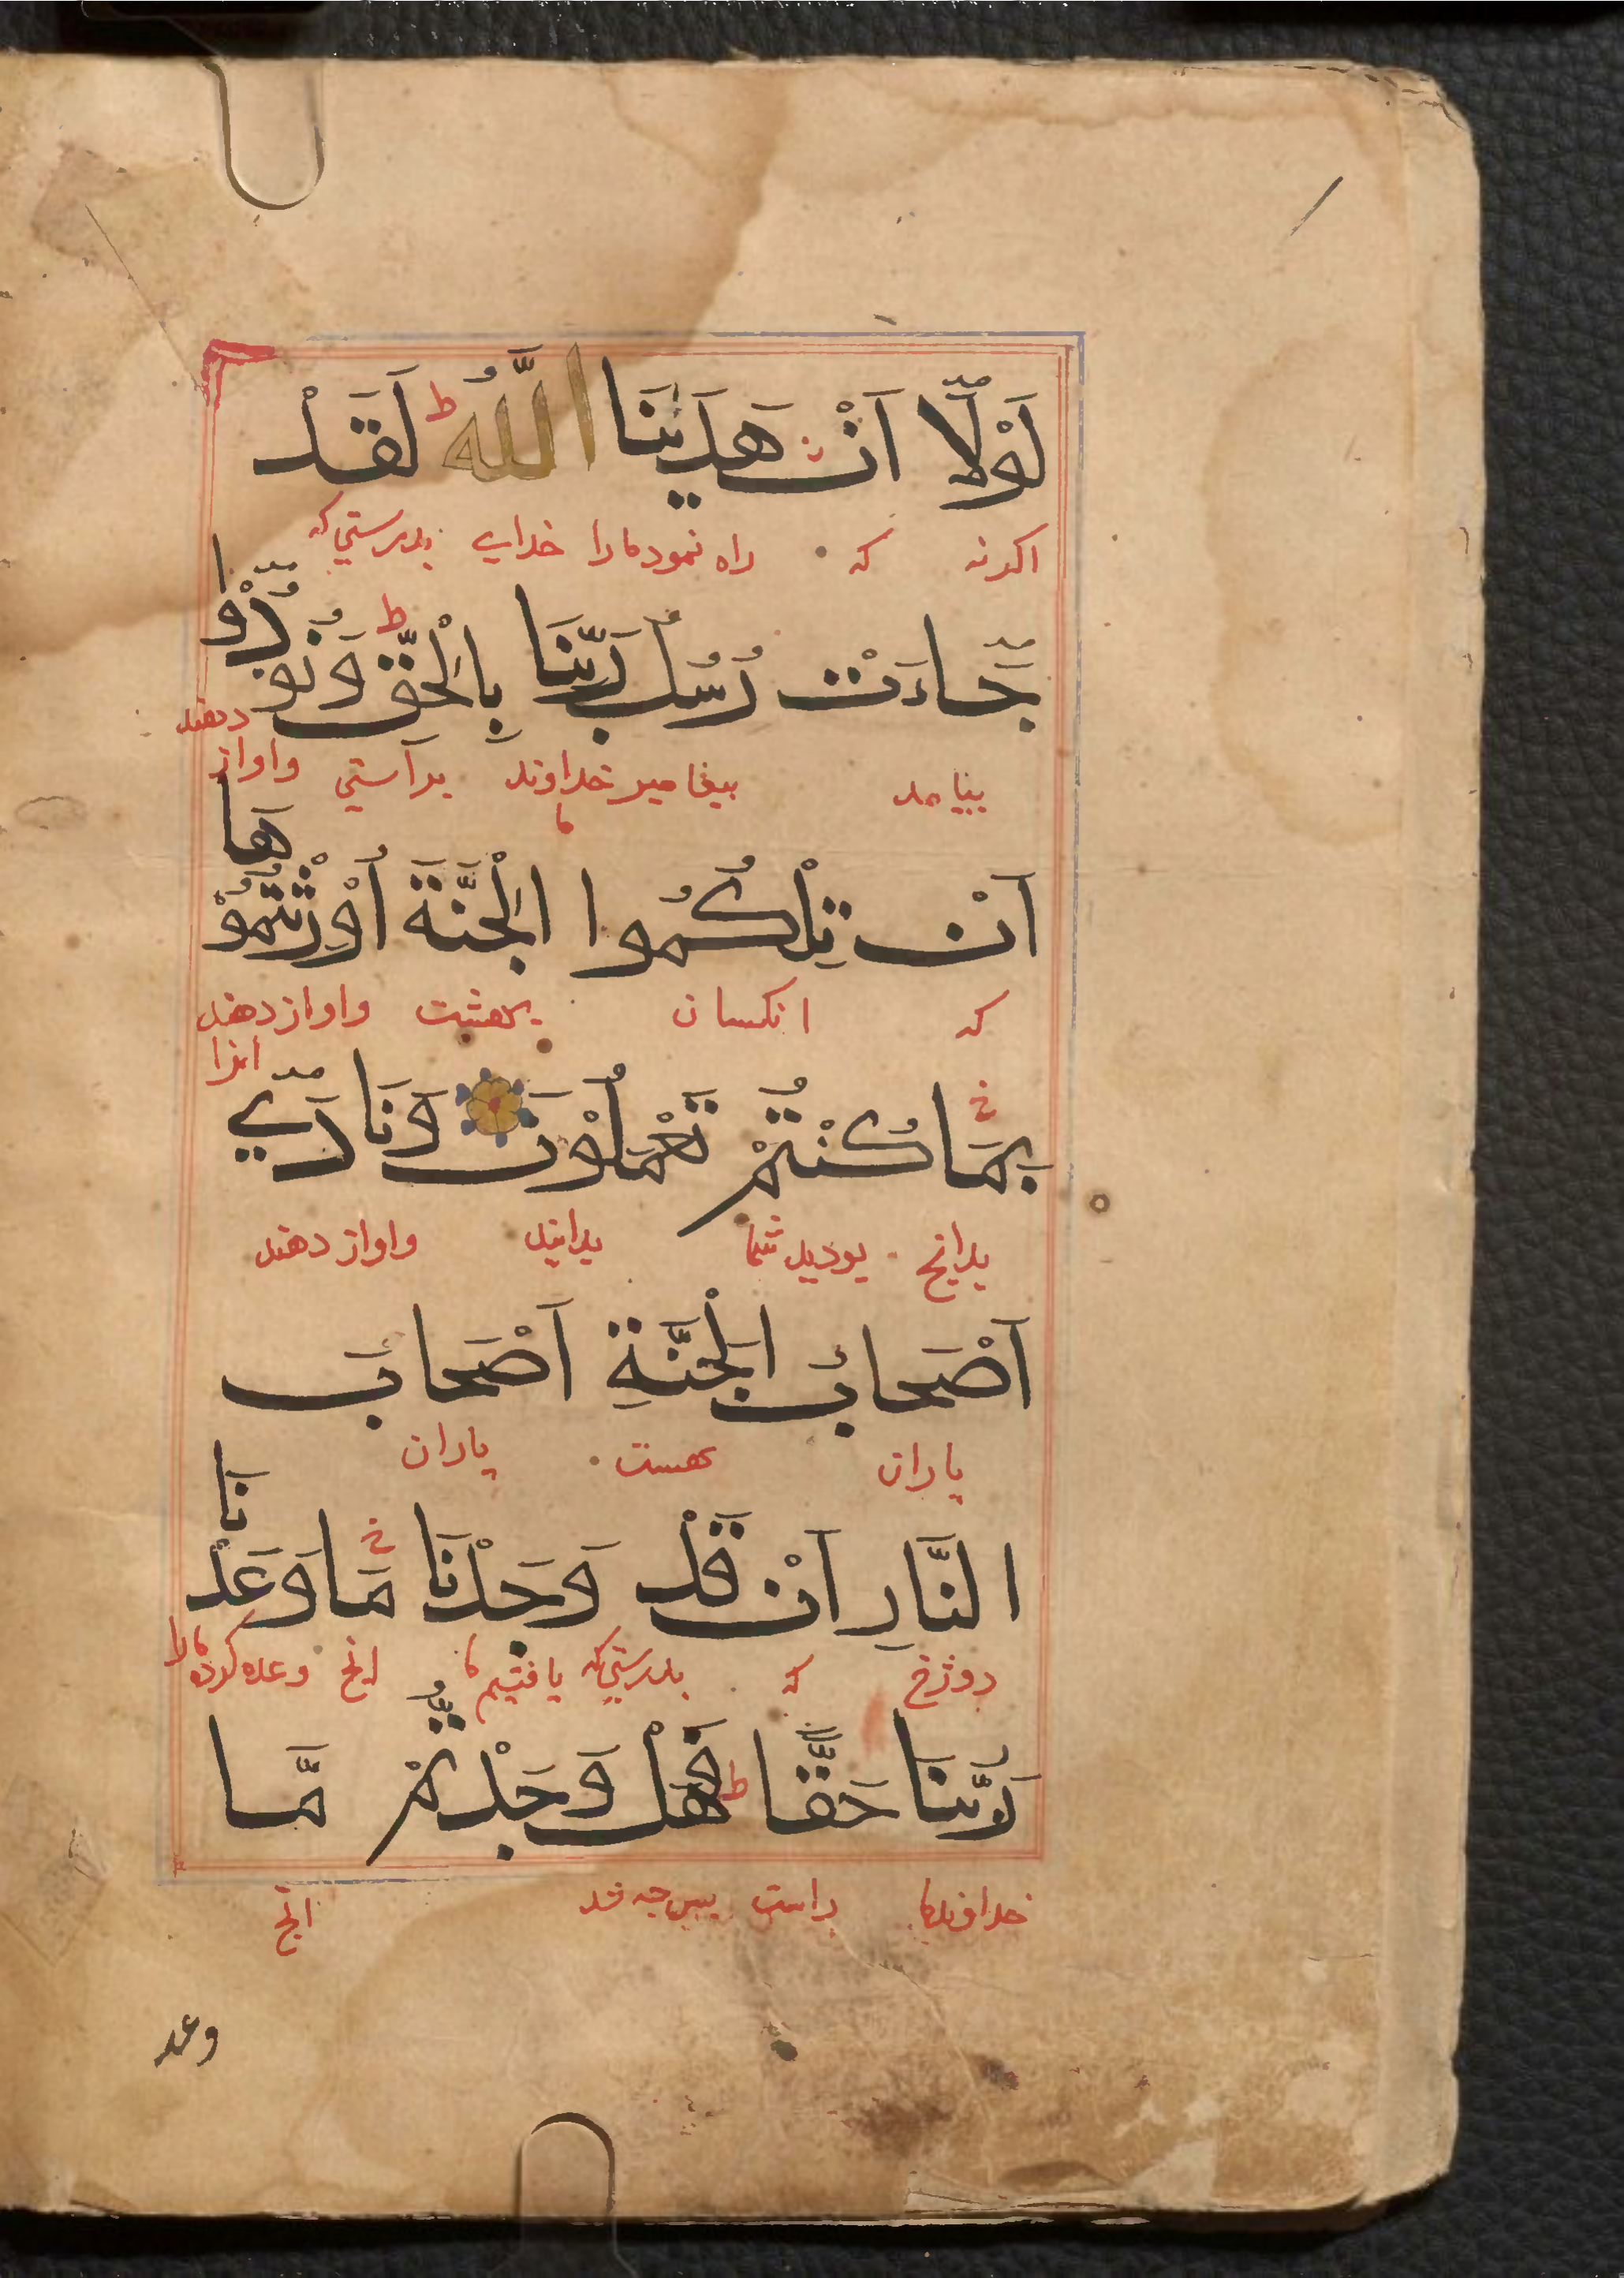 لَوْلَآ اَنْ هَدٰىنَا اللّٰهُ ط لَقَدْ
اکرنه که راه نمود مارا خدای بدرستي که
جَآءَتْ رُسُلُ رَبِّنَا بِالْحَقِّ ط وَنُوْدُوْٓا
بیامد پیغامبر خداوند ما براستي واواز دهند
اَنْ تِلْكُمُوا الْجَنَّةَ اُوْرِثْتُمُوْهَا
که انکسان بهشت واواز دهند انرا
بِمَا كُنْتُمْ تَعْمَلُوْنَ وَنَادٰٓي
بدانچ بودید شما بدانید واواز دهند
اَصْحَابُ الْجَنَّةِ اَصْحَابَ
یاران بهست یاران
النَّارِ اَنْ قَدْ وَجَدْنَا مَا وَعَدْنَا
دوزخ که بدرستي که یافتیم ما انچ وعده کرده مارا
رَبُّنَا حَقًّا ط فَهَلْ وَجَدْتُّمْ مَّا
خداوند ما راست پس چه شد انچ
وعد